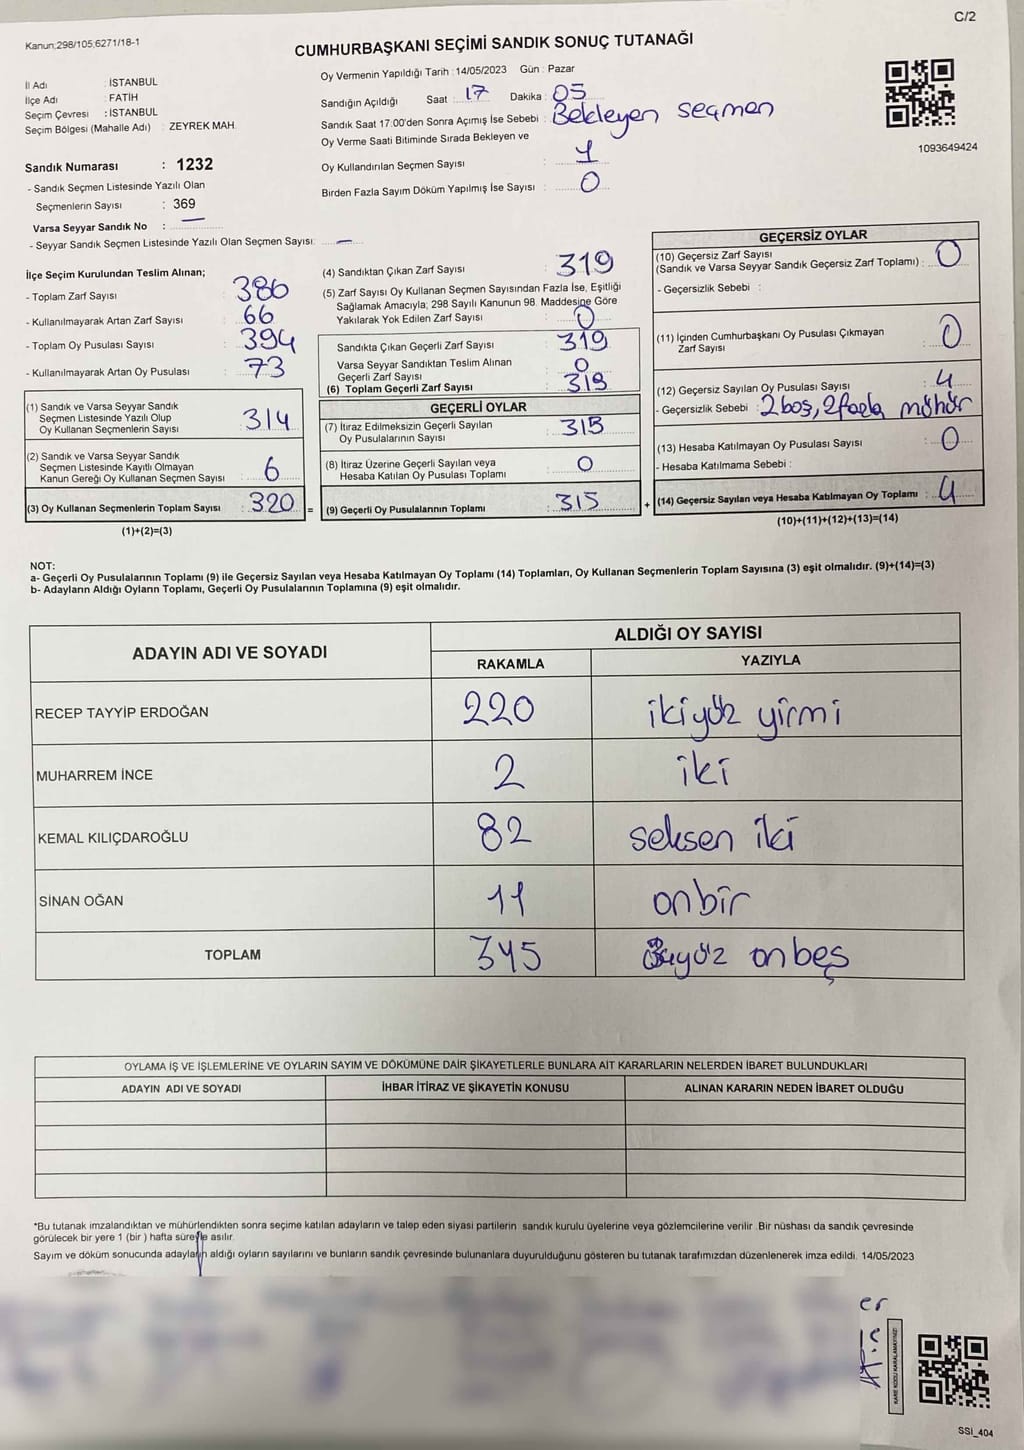 C/2
Kanun;298/105;6271/18-1
CUMHURBAŞKANI SEÇİMİ SANDIK SONUÇ TUTANAĞI
İl Adı : İSTANBUL
İlçe Adı : FATİH
Seçim Çevresi : İSTANBUL
Seçim Bölgesi (Mahalle Adı) : ZEYREK MAH.
Sandık Numarası : 1232
- Sandık Seçmen Listesinde Yazılı Olan
Seçmenlerin Sayısı : 369
Varsa Seyyar Sandık No : —
- Seyyar Sandık Seçmen Listesinde Yazılı Olan Seçmen Sayısı: —
Oy Vermenin Yapıldığı Tarih : 14/05/2023 Gün : Pazar
Sandığın Açıldığı Saat : 17 Dakika : 05
Sandık Saat 17:00'den Sonra Açımış İse Sebebi : Bekleyen seçmen
Oy Verme Saati Bitiminde Sırada Bekleyen ve
Oy Kullandırılan Seçmen Sayısı : 1
Birden Fazla Sayım Döküm Yapılmış İse Sayısı : 0
1093649424
İlçe Seçim Kurulundan Teslim Alınan;
- Toplam Zarf Sayısı : 386
- Kullanılmayarak Artan Zarf Sayısı : 66
- Toplam Oy Pusulası Sayısı : 394
- Kullanılmayarak Artan Oy Pusulası : 73
(1) Sandık ve Varsa Seyyar Sandık
Seçmen Listesinde Yazılı Olup
Oy Kullanan Seçmenlerin Sayısı : 314
(2) Sandık ve Varsa Seyyar Sandık
Seçmen Listesinde Kayıtlı Olmayan
Kanun Gereği Oy Kullanan Seçmen Sayısı : 6
(3) Oy Kullanan Seçmenlerin Toplam Sayısı : 320 =
(1)+(2)=(3)
(4) Sandıktan Çıkan Zarf Sayısı : 319
(5) Zarf Sayısı Oy Kullanan Seçmen Sayısından Fazla İse, Eşitliği
Sağlamak Amacıyla; 298 Sayılı Kanunun 98. Maddesine Göre
Yakılarak Yok Edilen Zarf Sayısı : 0
Sandıkta Çıkan Geçerli Zarf Sayısı : 319
Varsa Seyyar Sandıktan Teslim Alınan
Geçerli Zarf Sayısı : 0
(6) Toplam Geçerli Zarf Sayısı : 319
GEÇERLİ OYLAR
(7) İtiraz Edilmeksizin Geçerli Sayılan
Oy Pusulalarının Sayısı : 315
(8) İtiraz Üzerine Geçerli Sayılan veya
Hesaba Katılan Oy Pusulası Toplamı : 0
(9) Geçerli Oy Pusulalarının Toplamı : 315 +
GEÇERSİZ OYLAR
(10) Geçersiz Zarf Sayısı
(Sandık ve Varsa Seyyar Sandık Geçersiz Zarf Toplamı) : 0
- Geçersizlik Sebebi :
(11) İçinden Cumhurbaşkanı Oy Pusulası Çıkmayan
Zarf Sayısı : 0
(12) Geçersiz Sayılan Oy Pusulası Sayısı : 4
- Geçersizlik Sebebi : 2 boş, 2 fazla mühür
(13) Hesaba Katılmayan Oy Pusulası Sayısı : 0
- Hesaba Katılmama Sebebi :
(14) Geçersiz Sayılan veya Hesaba Katılmayan Oy Toplamı : 4
(10)+(11)+(12)+(13)=(14)
NOT:
a- Geçerli Oy Pusulalarının Toplamı (9) ile Geçersiz Sayılan veya Hesaba Katılmayan Oy Toplamı (14) Toplamları, Oy Kullanan Seçmenlerin Toplam Sayısına (3) eşit olmalıdır. (9)+(14)=(3)
b- Adayların Aldığı Oyların Toplamı, Geçerli Oy Pusulalarının Toplamına (9) eşit olmalıdır.
ADAYIN ADI VE SOYADI ALDIĞI OY SAYISI
RAKAMLA YAZIYLA
RECEP TAYYİP ERDOĞAN 220 ikiyüz yirmi
MUHARREM İNCE 2 iki
KEMAL KILIÇDAROĞLU 82 seksen iki
SİNAN OĞAN 11 onbir
TOPLAM 315 üçyüz onbeş
OYLAMA İŞ VE İŞLEMLERİNE VE OYLARIN SAYIM VE DÖKÜMÜNE DAİR ŞİKAYETLERLE BUNLARA AİT KARARLARIN NELERDEN İBARET BULUNDUKLARI
ADAYIN ADI VE SOYADI İHBAR İTİRAZ VE ŞİKAYETİN KONUSU ALINAN KARARIN NEDEN İBARET OLDUĞU
*Bu tutanak imzalandıktan ve mühürlendikten sonra seçime katılan adayların ve talep eden siyasi partilerin sandık kurulu üyelerine veya gözlemcilerine verilir. Bir nüshası da sandık çevresinde
görülecek bir yere 1 (bir ) hafta süreyle asılır.
Sayım ve döküm sonucunda adayların aldığı oyların sayılarını ve bunların sandık çevresinde bulunanlara duyurulduğunu gösteren bu tutanak tarafımızdan düzenlenerek imza edildi. 14/05/2023
er
KARE KODU KARALAMAYINIZ!
SSİ_404